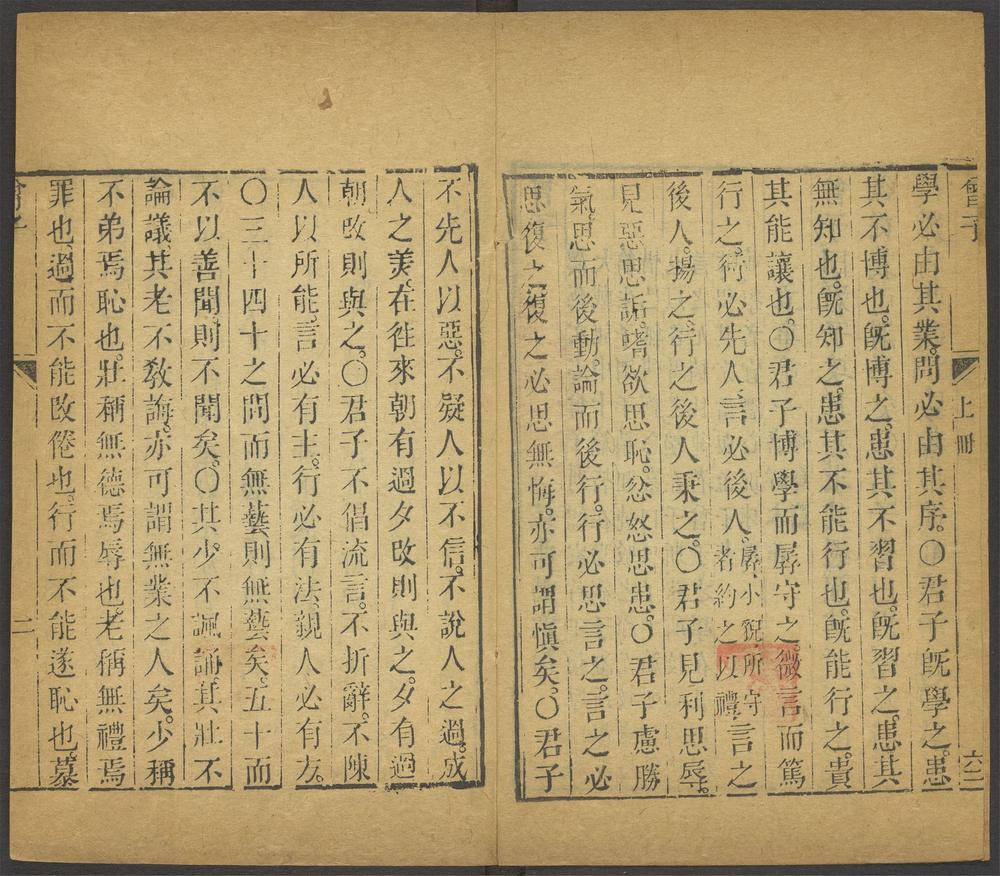 曾子 上冊 六二
學必由其業。問必由其序。〇君子旣學之。患
其不博也。旣博之。患其不習也。旣習之。患其
無知也。旣知之。患其不能行也。旣能行之。貴
其能讓也。〇君子博學而孱守之。微言而篤
行之。行必先人。言必後人。孱小貎所守者約之以禮言之
後人。揚之。行之後人秉之。〇君子見利思辱。
見惡思詬。嗜欲思恥。忿怒思患。〇君子慮勝
氣。思而後動。論而後行。行必思言之。言之必
思復之。復之必思無悔。亦可謂愼矣。〇君子
不先人以惡。不疑人以不信。不說人之過。成
人之美。在徃來朝有過夕攺則與之。夕有過
朝攺則與之。〇君子不倡流言。不折辭。不陳
人以所能。言必有主。行必有法。親人必有方。
〇三十四十之間而無藝則無藝矣。五十而
不以善聞。則不聞矣。〇其少。不諷誦。其壯不
論議。其老不敎誨。亦可謂無業之人矣。少稱
不弟焉恥也。壯稱無德焉辱也。老稱無禮焉
罪也。過而不能攺倦也。行而不能遂恥也。慕
二